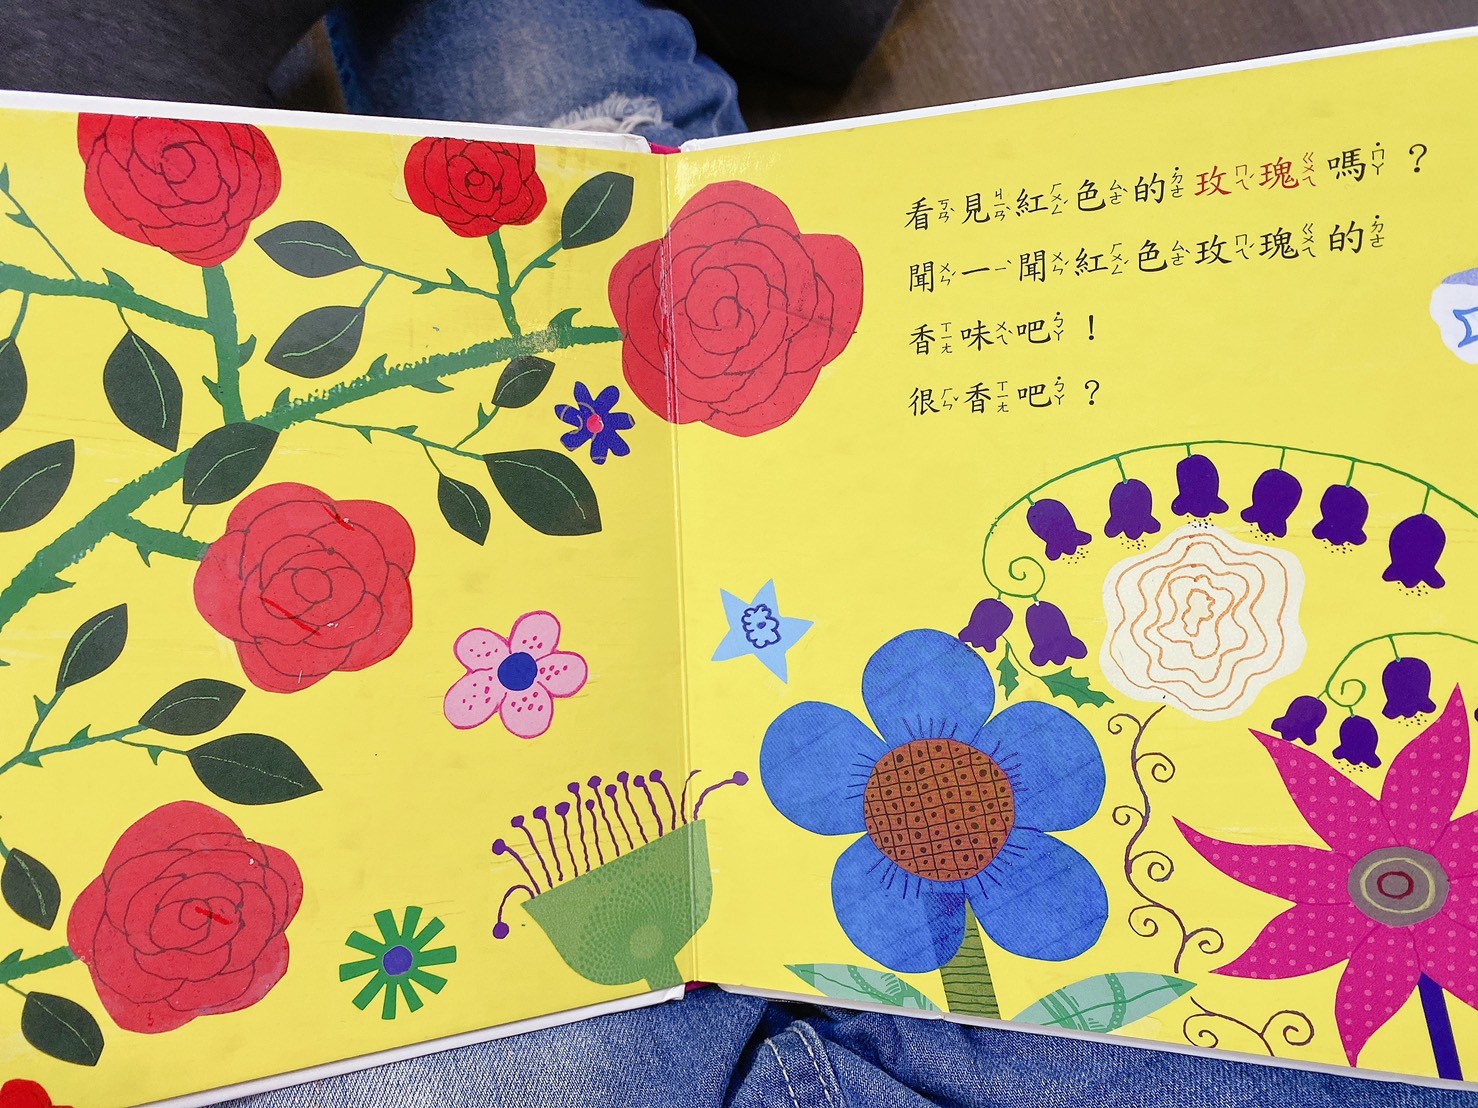 看見紅色的玫瑰嗎？
聞一聞紅色玫瑰的
香味吧！
很香吧？